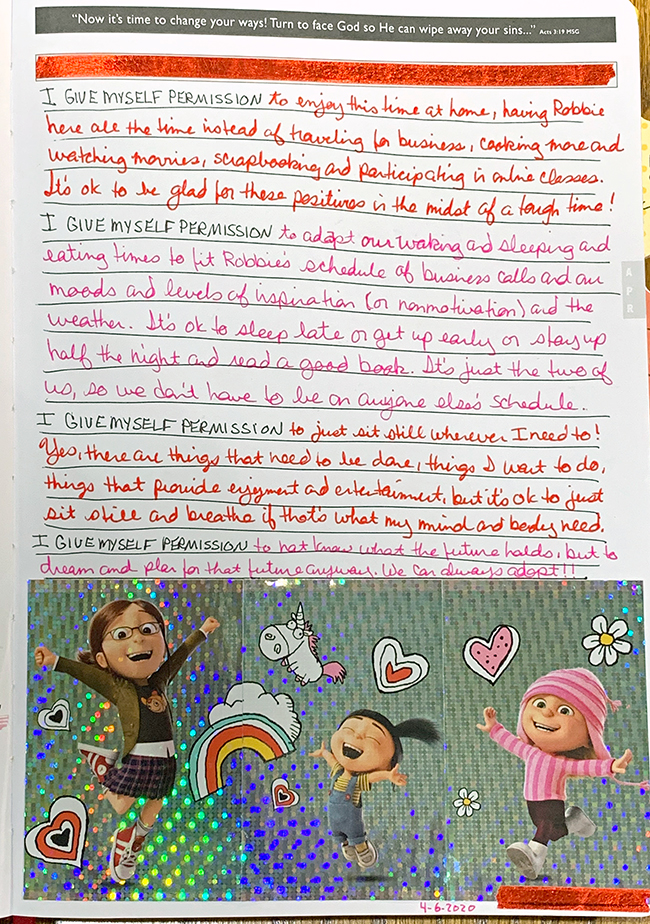 "Now it's time to change your ways! Turn to face God so He can wipe away your sins..." Acts 3:19 MSG
I GIVE MYSELF PERMISSION to enjoy this time at home, having Robbie
here all the time instead of traveling for business, cooking more and
watching movies, scrapbooking and participating in online classes.
It's ok to be glad for these positives in the midst of a tough time!
I GIVE MYSELF PERMISSION to adapt our waking and sleeping and
eating times to fit Robbie's schedule of business calls and our
moods and levels of inspiration (or nonmotivation) and the
weather. It's ok to sleep late or get up early or stay up
half the night and read a good book. It's just the two of
us, so we don't have to be on anyone else's schedule.
I GIVE MYSELF PERMISSION to just sit still wherever I need to!
Yes, there are things that need to be done, things I want to do,
things that provide enjoyment and entertainment, but it's ok to just
sit still and breathe if that's what my mind and body need.
I GIVE MYSELF PERMISSION to not know what the future holds, but to
dream and plan for that future anyway. We can always adapt!!
APR
4-6-2020